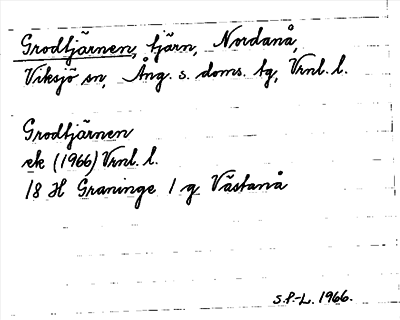 Grodtjärnen, tjärn, Nordanå,
Viksjö sn, Ång. s. doms. tg, Vrnl. l.
Grodtjärnen
ek (1966) Vrnl. l.
18 H Graninge 1 g Västanå
S.P-L. 1966.